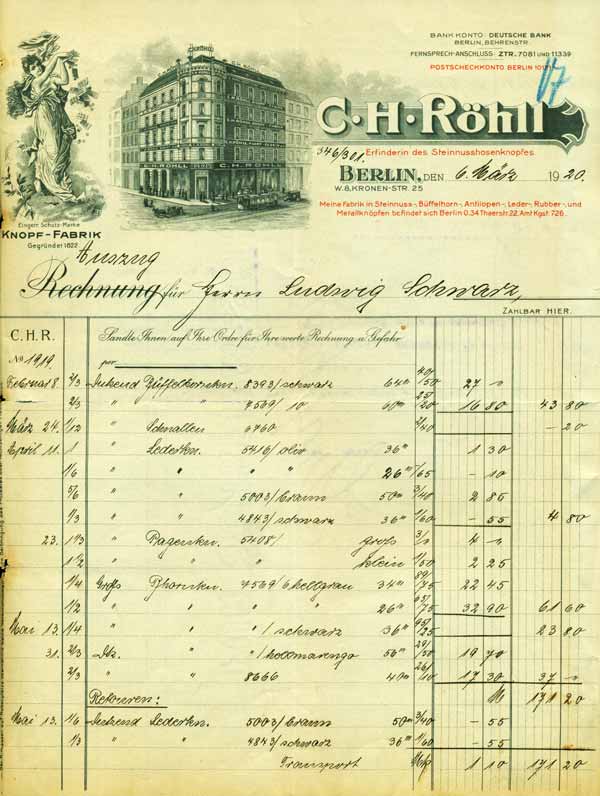 BANK KONTO: DEUTSCHE BANK
BERLIN, BEHRENSTR.
FERNSPRECH-ANSCHLUSS: ZTR. 7081 UND 11339
POSTSCHECKKONTO BERLIN
17
RÖHLL
C. H. RÖHLL
C. H. RÖHLL
C·H·Röhll
346/301.
Erfinderin des Steinnusshosenknopfes.
BERLIN, DEN 6. März 1920.
W. 8, KRONEN-STR. 25
Meine Fabrik in Steinnuss-, Büffelhorn-, Antilopen-, Leder-, Rubber-, und
Metallknöpfen befindet sich Berlin O.34 Thaerstr. 22, Amt Kgst. 726.
Eingetr. Schutz-Marke
KNOPF-FABRIK
Gegründet 1822
Auszug
Rechnung für Herrn Ludwig Schwarz,
ZAHLBAR HIER.
C. H. R. Sandte Ihnen auf Ihre Ordre für Ihre werte Rechnung u. Gefahr
No 1919. per
Februar 8. 2/3 Dutzend Büffelhornkn. 8393/schwarz 64''' 40/50 27 –
2/3 " " 7569/10 60''' 25/20 16 80 43 80
März 24. 1/12 " Schnallen 6760 2/40 – 20
April 11. 1 " Lederkn. 5416/oliv 36''' 1 30
1/6 " " " " 26''' /65 – 10
5/6 " " 5003/braun 50''' 3/40 2 85
1/3 " " 4843/schwarz 36''' 1/60 – 55 4 80
23. 1 1/3 " Pagenkn. 5408/ groß 3/ 4 –
1 1/2 " " klein 1/50 2 25
1/4 Groß 7569/6 hellgrau 34''' 89/75 22 45
1/2 " " " 26''' 65/75 32 90 61 60
Mai 13. 1/4 " " "/schwarz 36''' 95/25 23 80
31. 2/3 Dtz. " " 56''' 29/50 19 70
2/3 " " 8666 40''' 26/ 17 30 37 –
Retouren: M 171 20
Mai 13. 1/6 Dutzend Lederkn. 5003/braun 50''' 3/40 – 55
1/3 " " 4843/schwarz 36''' 1/60 – 55
Transport Mk 1 10 171 20